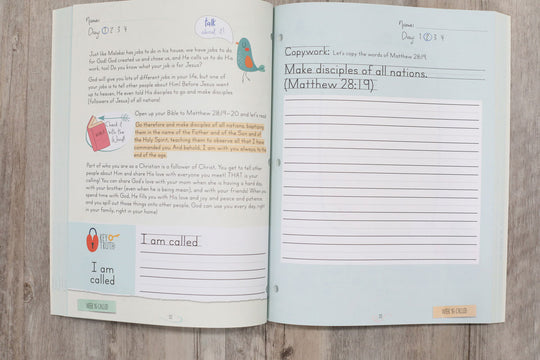 Name:
Day: 1 2 3 4
talk
about it!
Just like Malakai has jobs to do in his house, we have jobs to do
for God! God created us and chose us, and He calls us to do His
work, too! Do you know what your job is for Jesus?
God will give you lots of different jobs in your life, but one of
your jobs is to tell other people about Him! Before Jesus went
up to heaven, He even told His disciples to go and make disciples
(followers of Jesus) of all nations!
Open up your Bible to Matthew 28:19-20 and let's read:
Go therefore and make disciples of all nations, baptizing
them in the name of the Father and of the Son and of
the Holy Spirit, teaching them to observe all that I have
commanded you. And behold, I am with you always, to the
end of the age.
Part of who you are as a Christian is a follower of Christ. You get to tell
other people about Him and share His love with everyone you meet! THAT is your
calling! You can share God's love with your mom when she is having a hard day,
with your brother (even when he is being mean), and with your friends! When you
spend time with God, He fills you with His love and joy and peace and patience
and you spill out those things onto other people. God can use you every day, right
in your family, right in your home!
KEY
TRUTH:
I am
called
I am called
WEEK 16: CALLED
Name:
Day: 1 2 3 4
Copywork: Let's copy the words of Matthew 28:19.
Make disciples of all nations.
(Matthew 28:19)
WEEK 16: CALLED